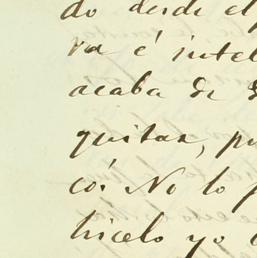 do desde el
va é intel
acaba de
quitar, pu
có. No lo p
hícelo yo